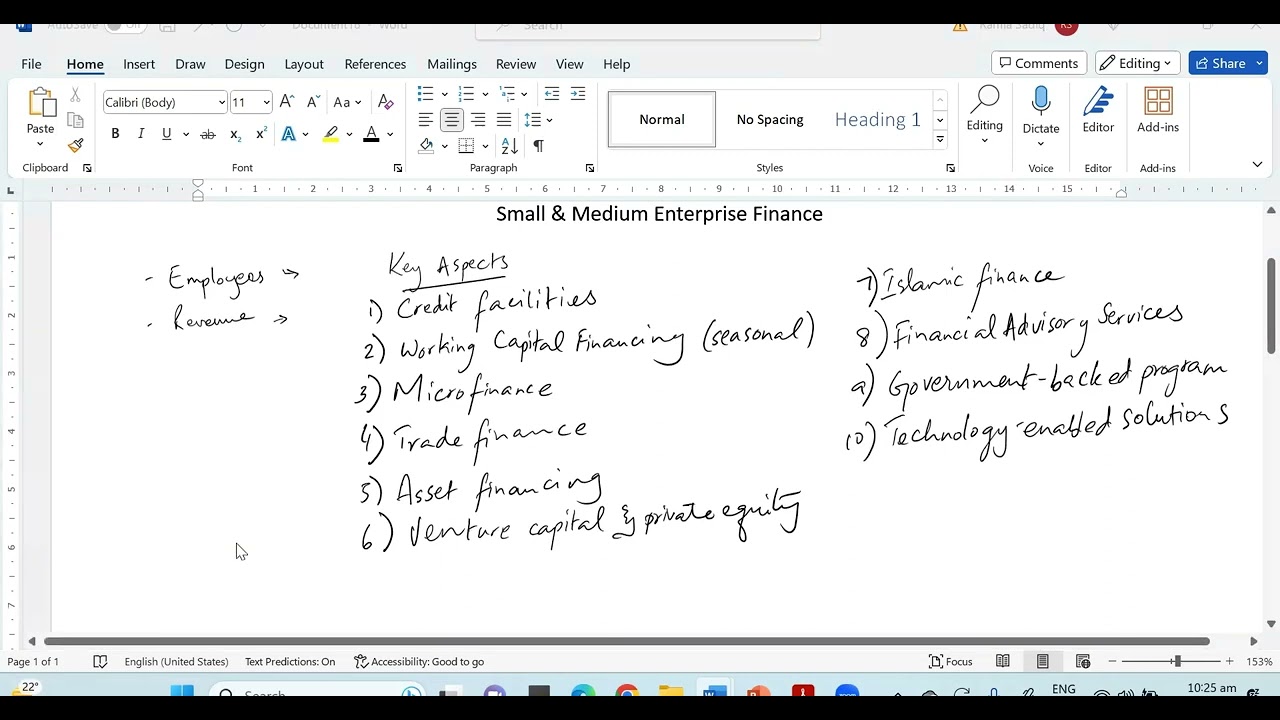 AutoSave
Off
Document6 - Word
Search
Ramla Sadiq
RS
File Home Insert Draw Design Layout References Mailings Review View Help
Comments
Editing
Share
Paste
Clipboard
Calibri (Body)
11
Font
Paragraph
Normal
No Spacing
Heading 1
Styles
Editing
Dictate
Voice
Editor
Editor
Add-ins
Add-ins
1 2 3 4 5 6 7 8 9 10 11 12 13 14 15
Small & Medium Enterprise Finance
- Employees →
- Revenue →
Key Aspects
1) Credit facilities
2) Working Capital Financing (seasonal)
3) Microfinance
4) Trade finance
5) Asset financing
6) Venture capital & private equity
7) Islamic finance
8) Financial Advisory Services
9) Government-backed program
10) Technology-enabled solutions
1
2
3
4
5
6
7
Page 1 of 1
English (United States)
Text Predictions: On
Accessibility: Good to go
Focus
153%
22°
Search
ENG
10:25 am